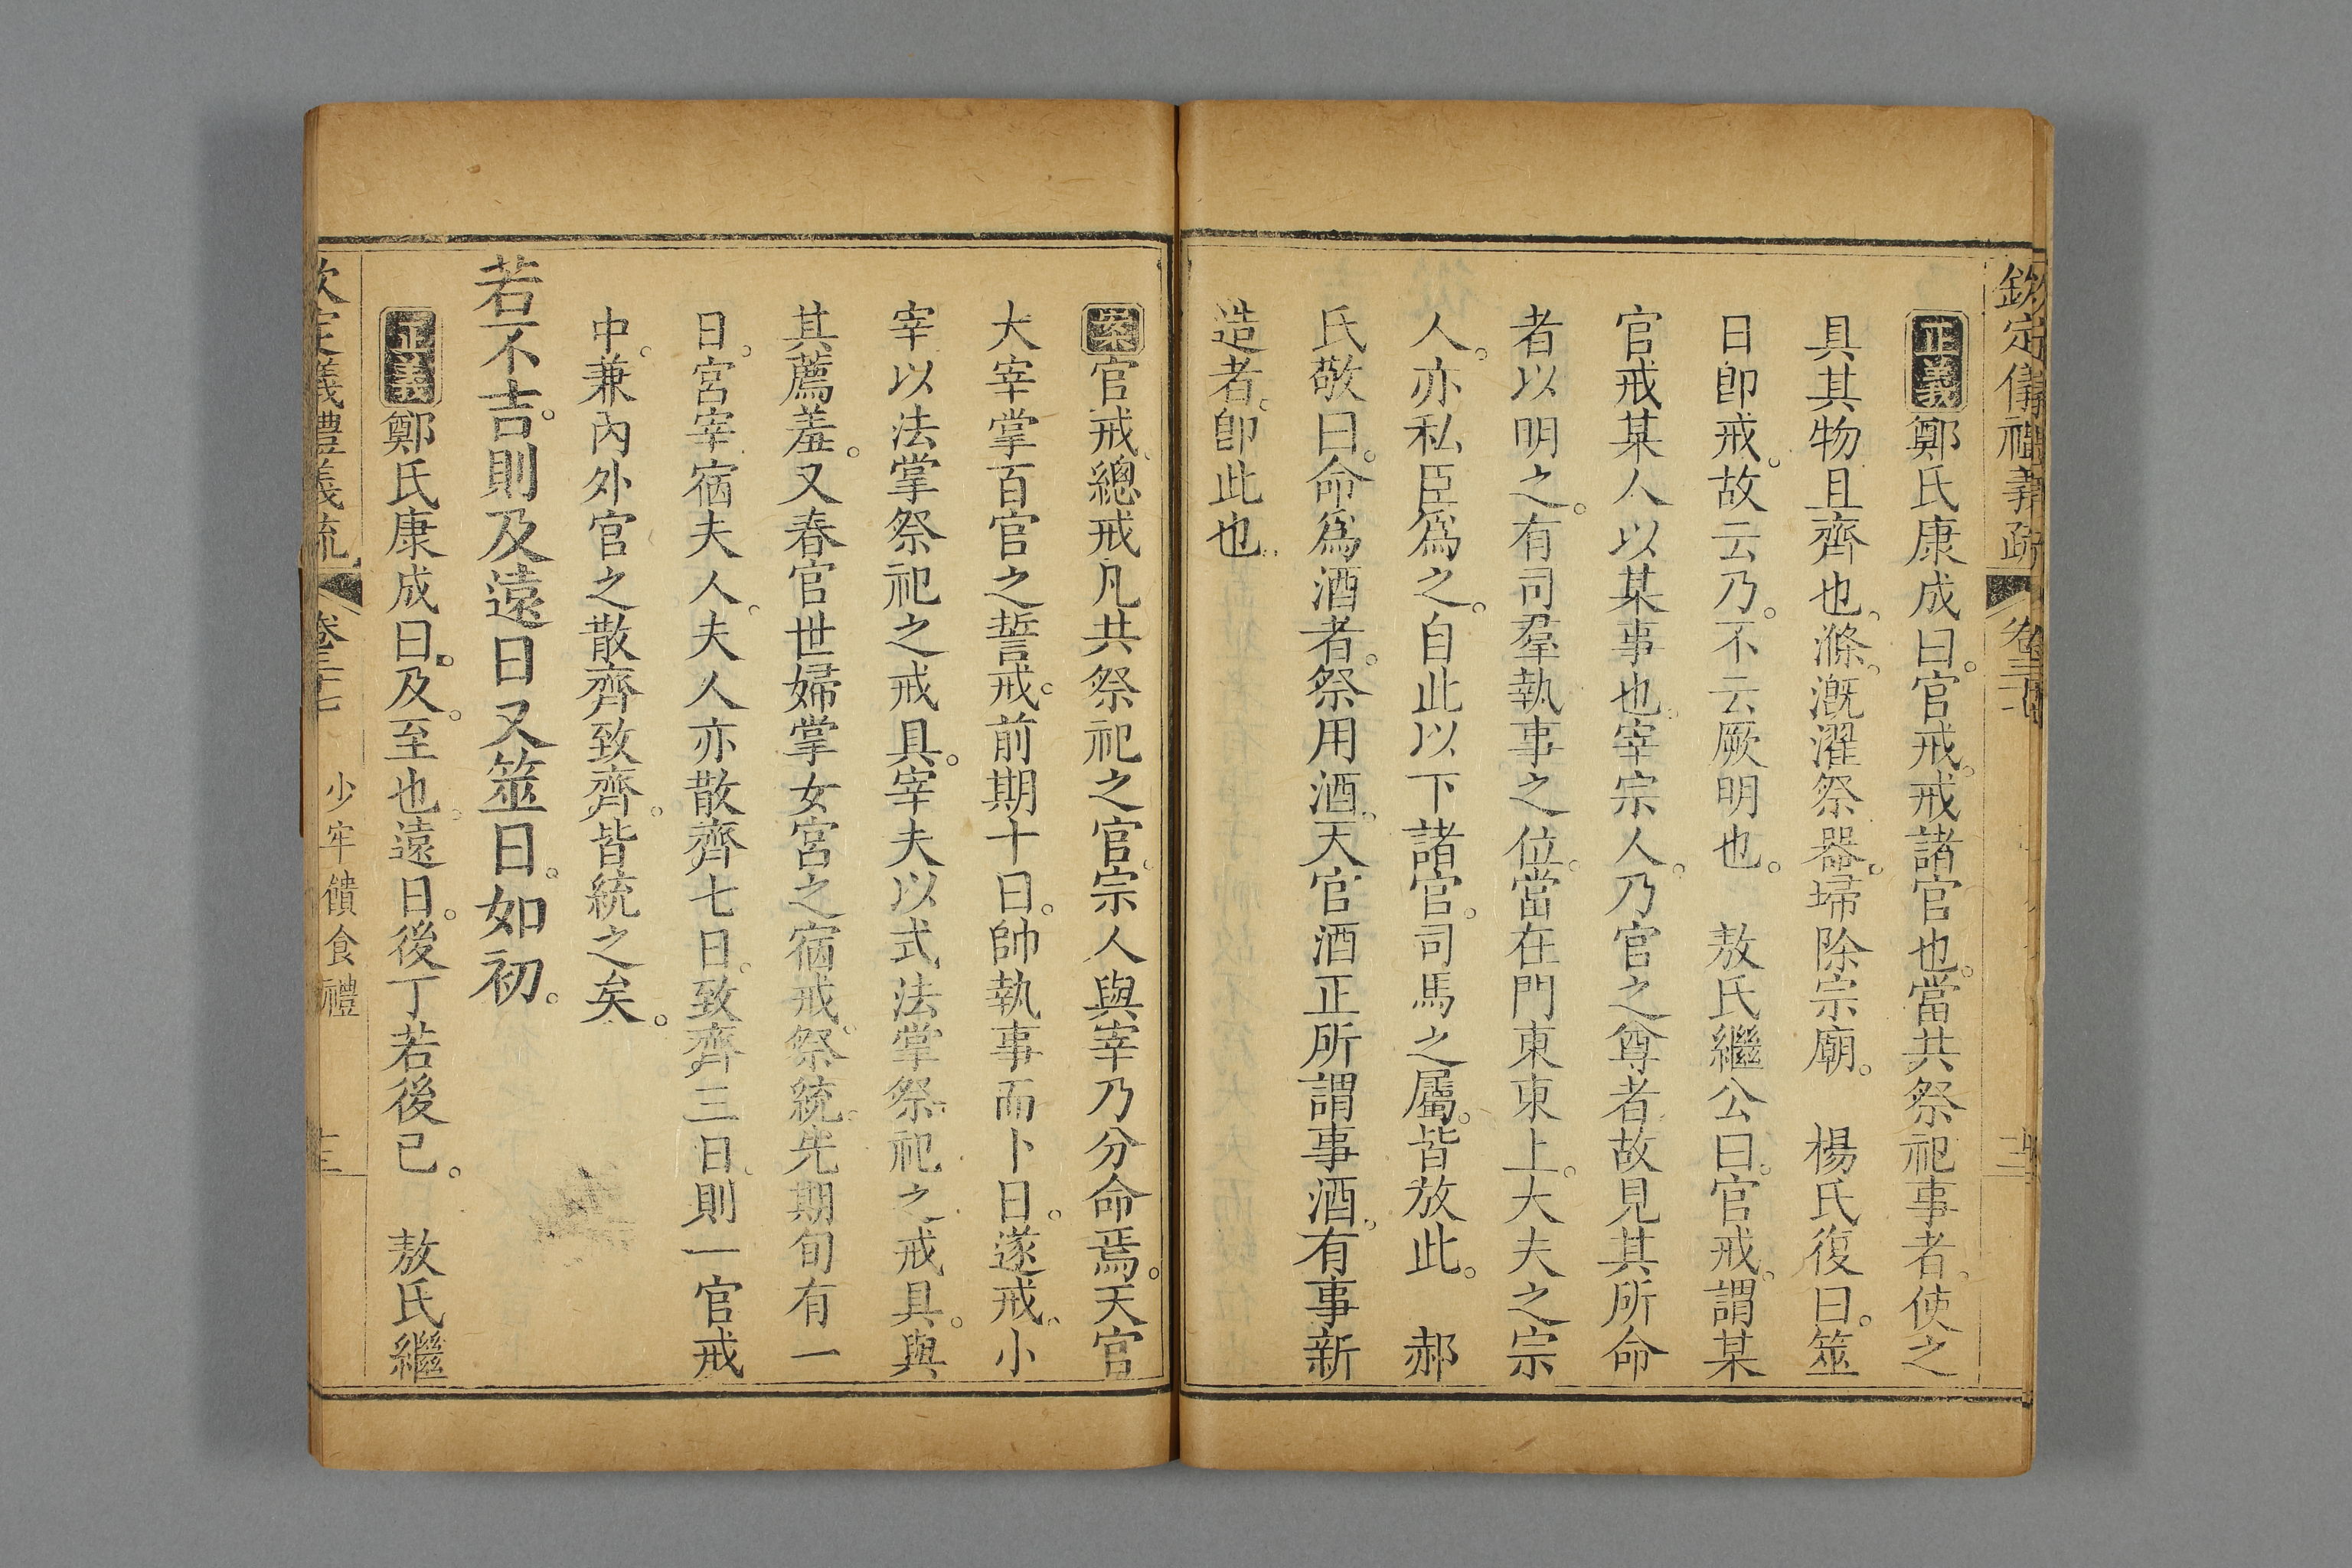 欽定儀禮義疏 卷三十七
正義鄭氏康成曰。官戒。戒諸官也。當共祭祀事者。使之
具其物且齊也。滌。溉濯祭器。埽除宗廟。　楊氏復曰。筮
日卽戒。故云乃。不云厥明也。　敖氏繼公曰。官戒。謂某
官戒某人以某事也。宰宗人。乃官之尊者故見其所命
者以明之。有司羣執事之位。當在門東東上。大夫之宗
人。亦私臣爲之。自此以下諸官。司馬之屬。皆放此。　郝
氏敬曰。命爲酒者。祭用酒。天官酒正所謂事酒。有事新
造者。卽此也。
案官戒。總戒凡共祭祀之官。宗人與宰乃分命焉。天官
大宰掌百官之誓戒。前期十日。帥執事而卜日。遂戒。小
宰以法掌祭祀之戒具。宰夫以式法掌祭祀之戒具。與
其薦羞。又春官世婦掌女宮之宿戒。祭統。先期旬有一
日。宮宰宿夫人。夫人亦散齊七日。致齊三日。則一官戒
中。兼內外官之散齊致齊。皆統之矣。
若不吉。則及遠日又筮日。如初。
正義鄭氏康成曰。及。至也。遠日。後丁若後已。　敖氏繼
欽定儀禮義疏 卷三十七 少牢饋食禮